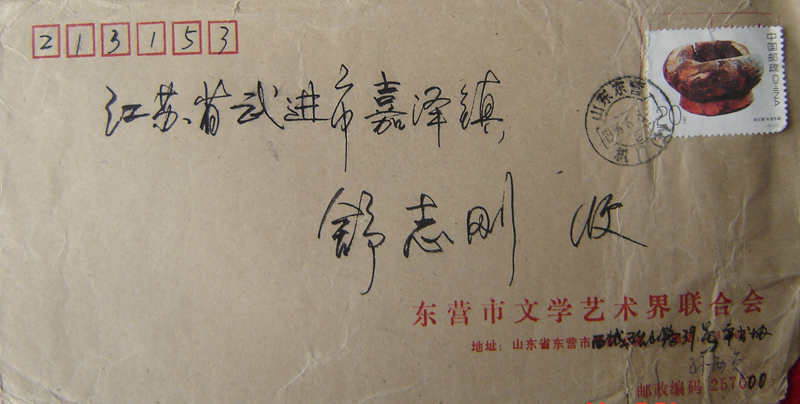 213153
中国邮政CHINA
20分
山东东营
江苏省武进市嘉泽镇
舒志刚 收
东营市文学艺术界联合会
地址：山东省东营市西城
邮政编码 257000